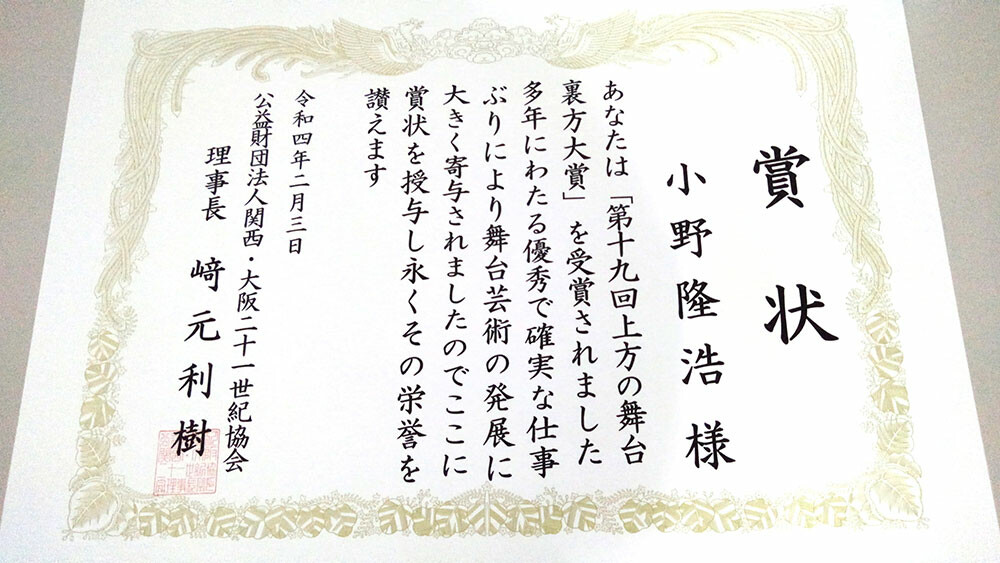 賞状
小野隆浩様
あなたは「第十九回上方の舞台
裏方大賞」を受賞されました
多年にわたる優秀で確実な仕事
ぶりにより舞台芸術の発展に
大きく寄与されましたのでここに
賞状を授与し永くその栄誉を
讃えます
令和四年二月三日
公益財団法人関西・大阪二十一世紀協会
理事長 﨑元利樹